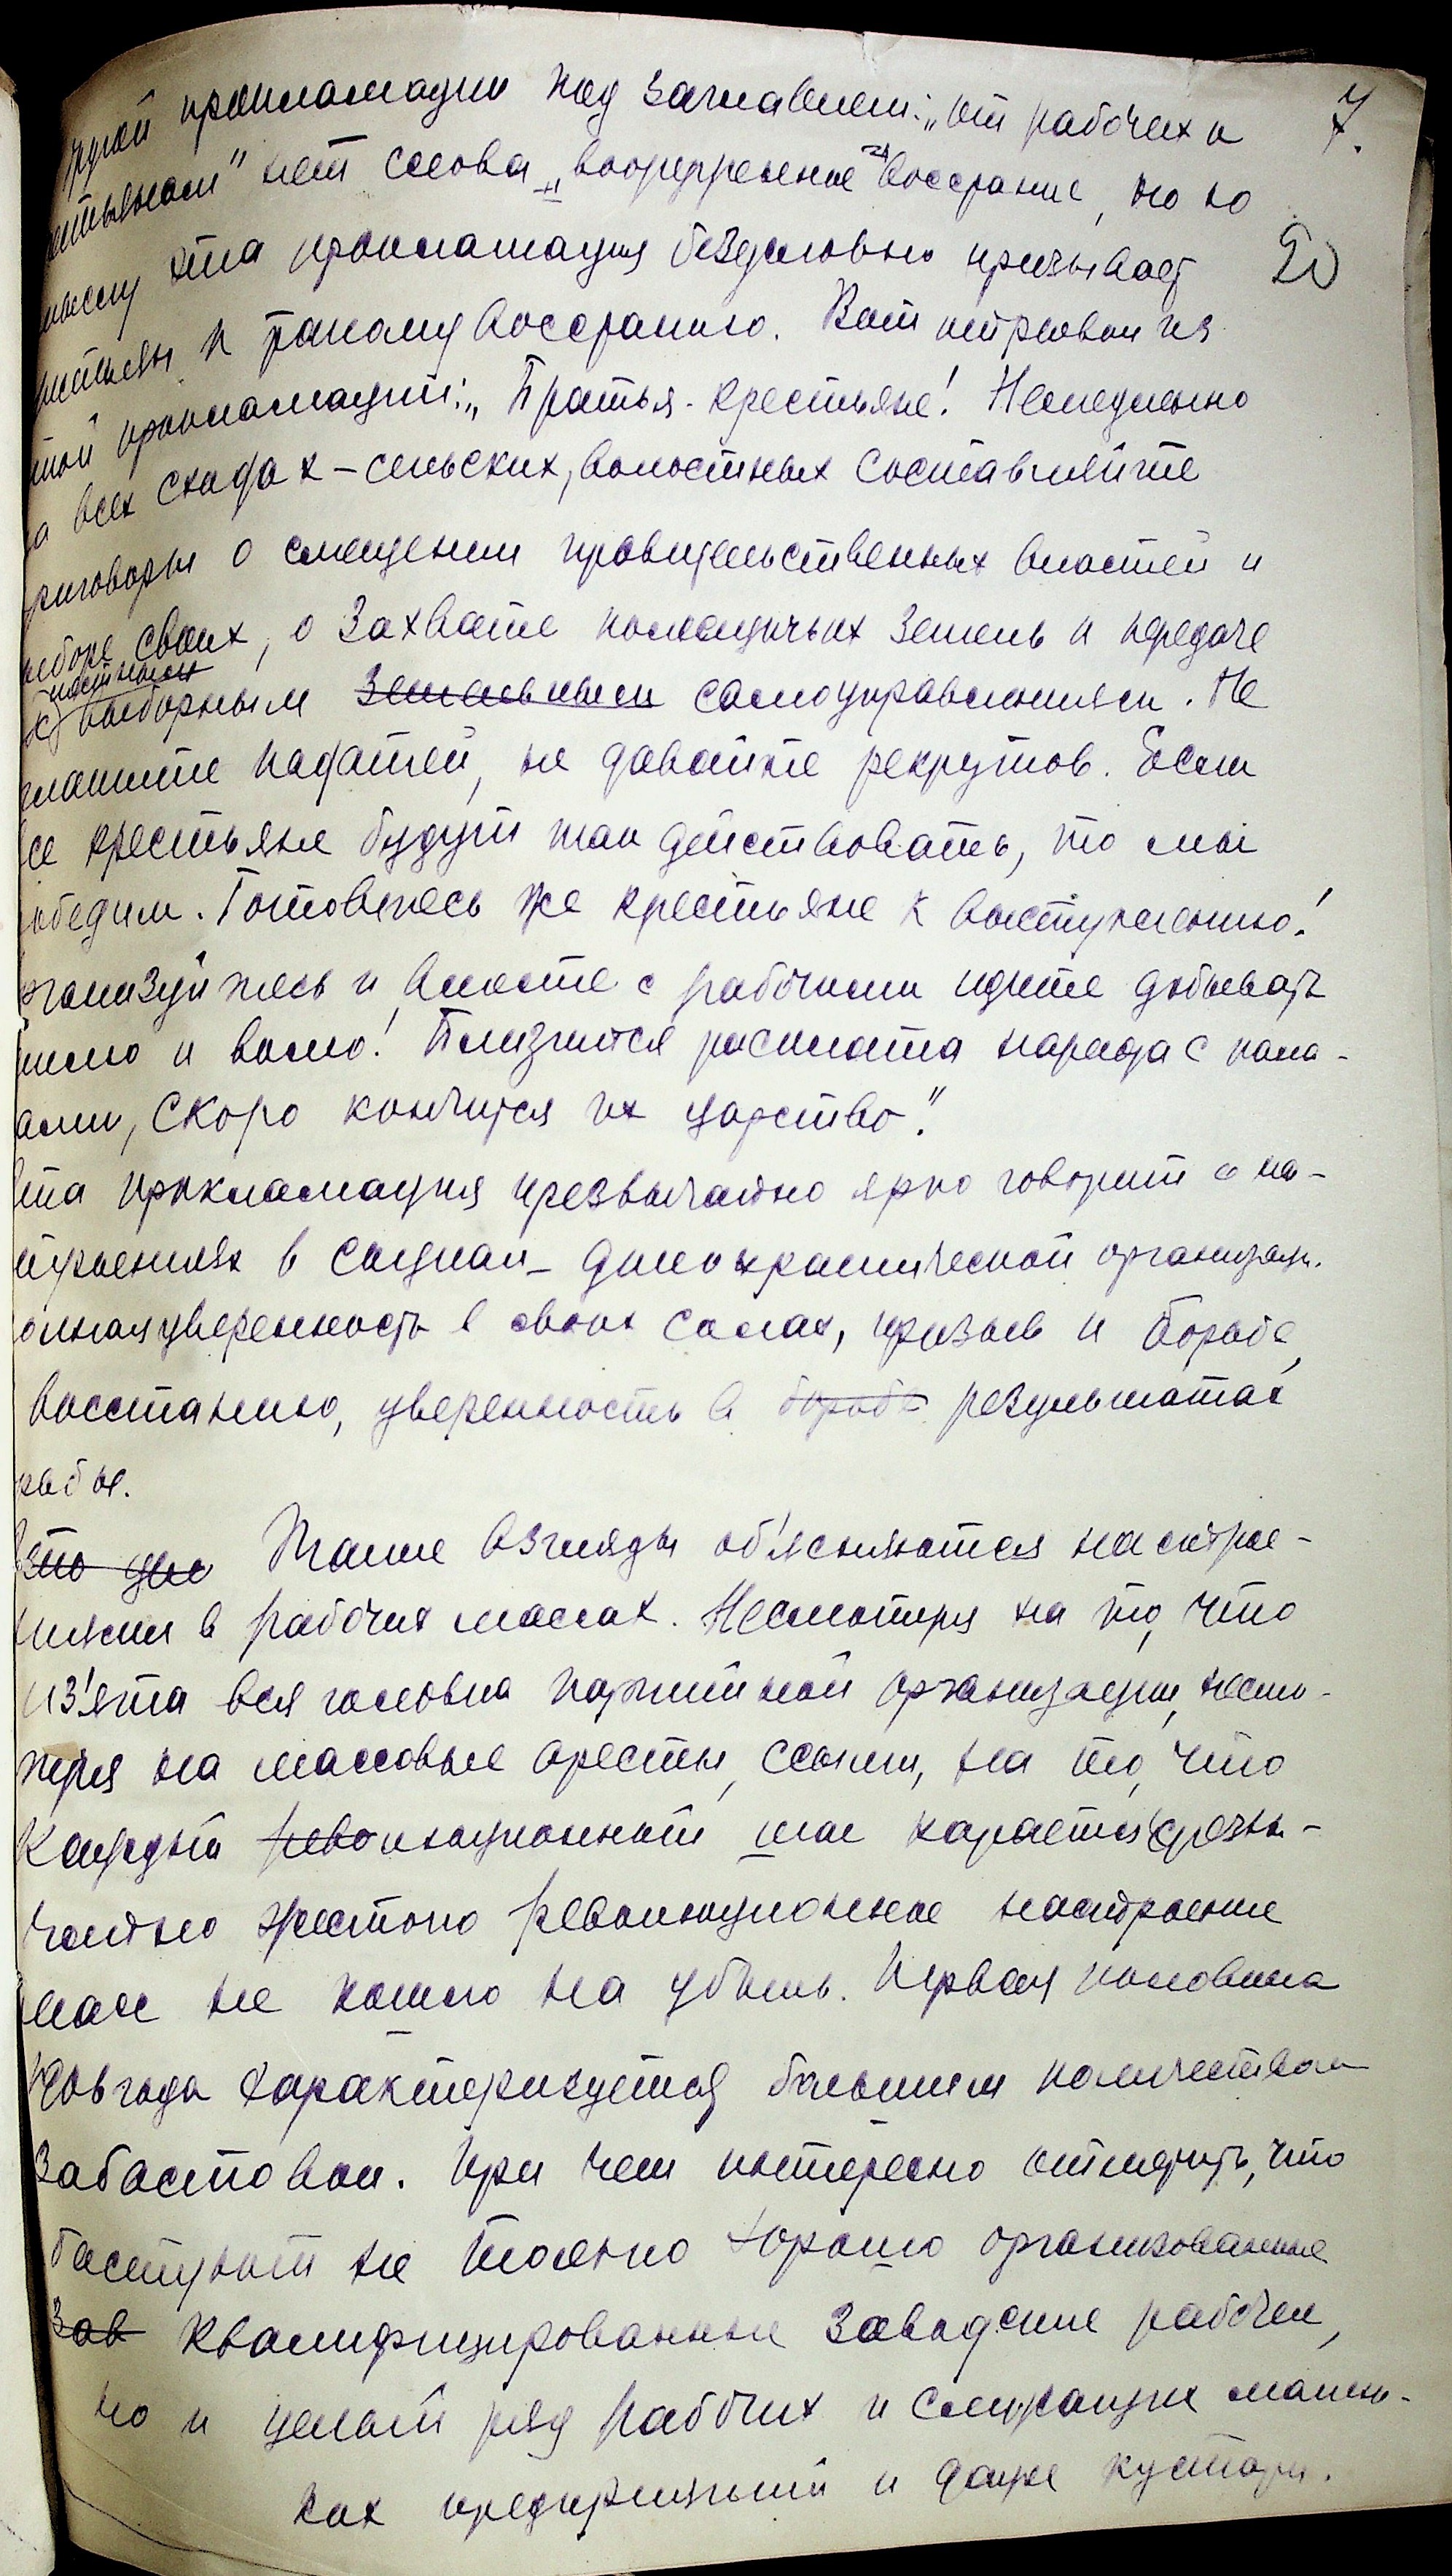 другой прокламации под заглавием: „От рабочих к 7.
крестьянам" нет слова „вооруженное восстание, но по
смыслу эта прокламация безусловно призывает 20
крестьян к такому восстанию. Вот отрывок из
этой прокламации: „Братья-крестьяне! Немедленно
на всех сходах - сельских, волостных составляйте
приговоры о смещении правительственных властей и
выборе своих, о захвате помещичьих земель и передаче
местным
их выборным земельным самоуправлениям. Не
платите податей, не давайте рекрутов. Если
все крестьяне будут так действовать, то мы
победим. Готовьтесь же крестьяне к выступлению!
Организуйтесь и вместе с рабочими идите добывать
землю и волю! Близится расплата народа с пала-
чами, скоро кончится их царство".
Эта прокламация чрезвычайно ярко говорит о на-
строениях в социал-демократической организации.
Полная уверенность в своих силах, призыв к борьбе,
восстанию, уверенность в борьбе результатах
борьбы.
Это уже Такие взгляды об'ясняются настрое-
ниями в рабочих массах. Несмотря на то, что
из'ята вся головка партийной организации, несмо-
тря на массовые аресты, ссылки, на то, что
каждый революционный шаг карается чрезвы-
чайно жестоко революционное настроение
масс не пошло на убыль. Первая половина
года характеризуется большим количеством
забастовок. При чем интересно отметить, что
бастуют не только хорошо организованные
зав квалифицированные заводские рабочие,
но и целый ряд рабочих и служащих малень-
ких предприятий и даже кустари.